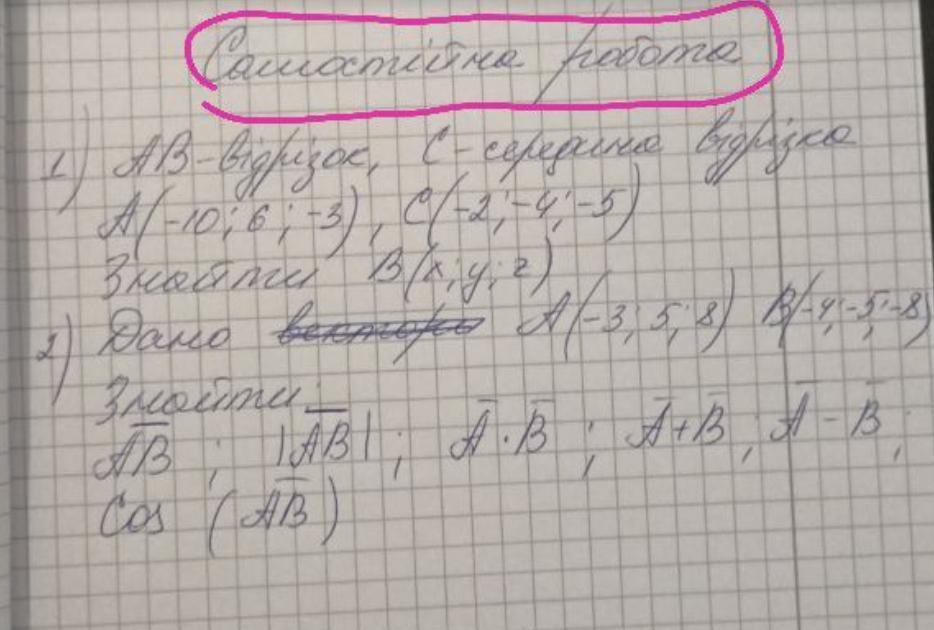 Самостійна робота
1) AB-відрізок, C-середина відрізка
A(-10; 6; -3), C(-2; -4; -5)
Знайти B(x; y; z)
2) Дано вектори A(-3; 5; 8) B(-4; -5; -8)
Знайти:
A̅B̅ ; |A̅B̅| ; A̅·B̅ ; A̅+B̅ ; A̅-B̅ ;
Cos (A̅B̅)